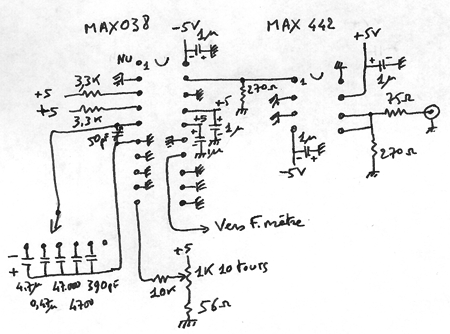 MAX038
-5V
MAX 442
+5V
1µ
NU
1
1
1µ
3,3K
+5
270Ω
+5
+5
75Ω
3,3K
+5
1µ
50pF
1µ
1µ
270Ω
-5V
Vers F.mètre
+5
1K 10 tours
10K
4,7µ
47.000
390pF
0,47µ
4700
56Ω